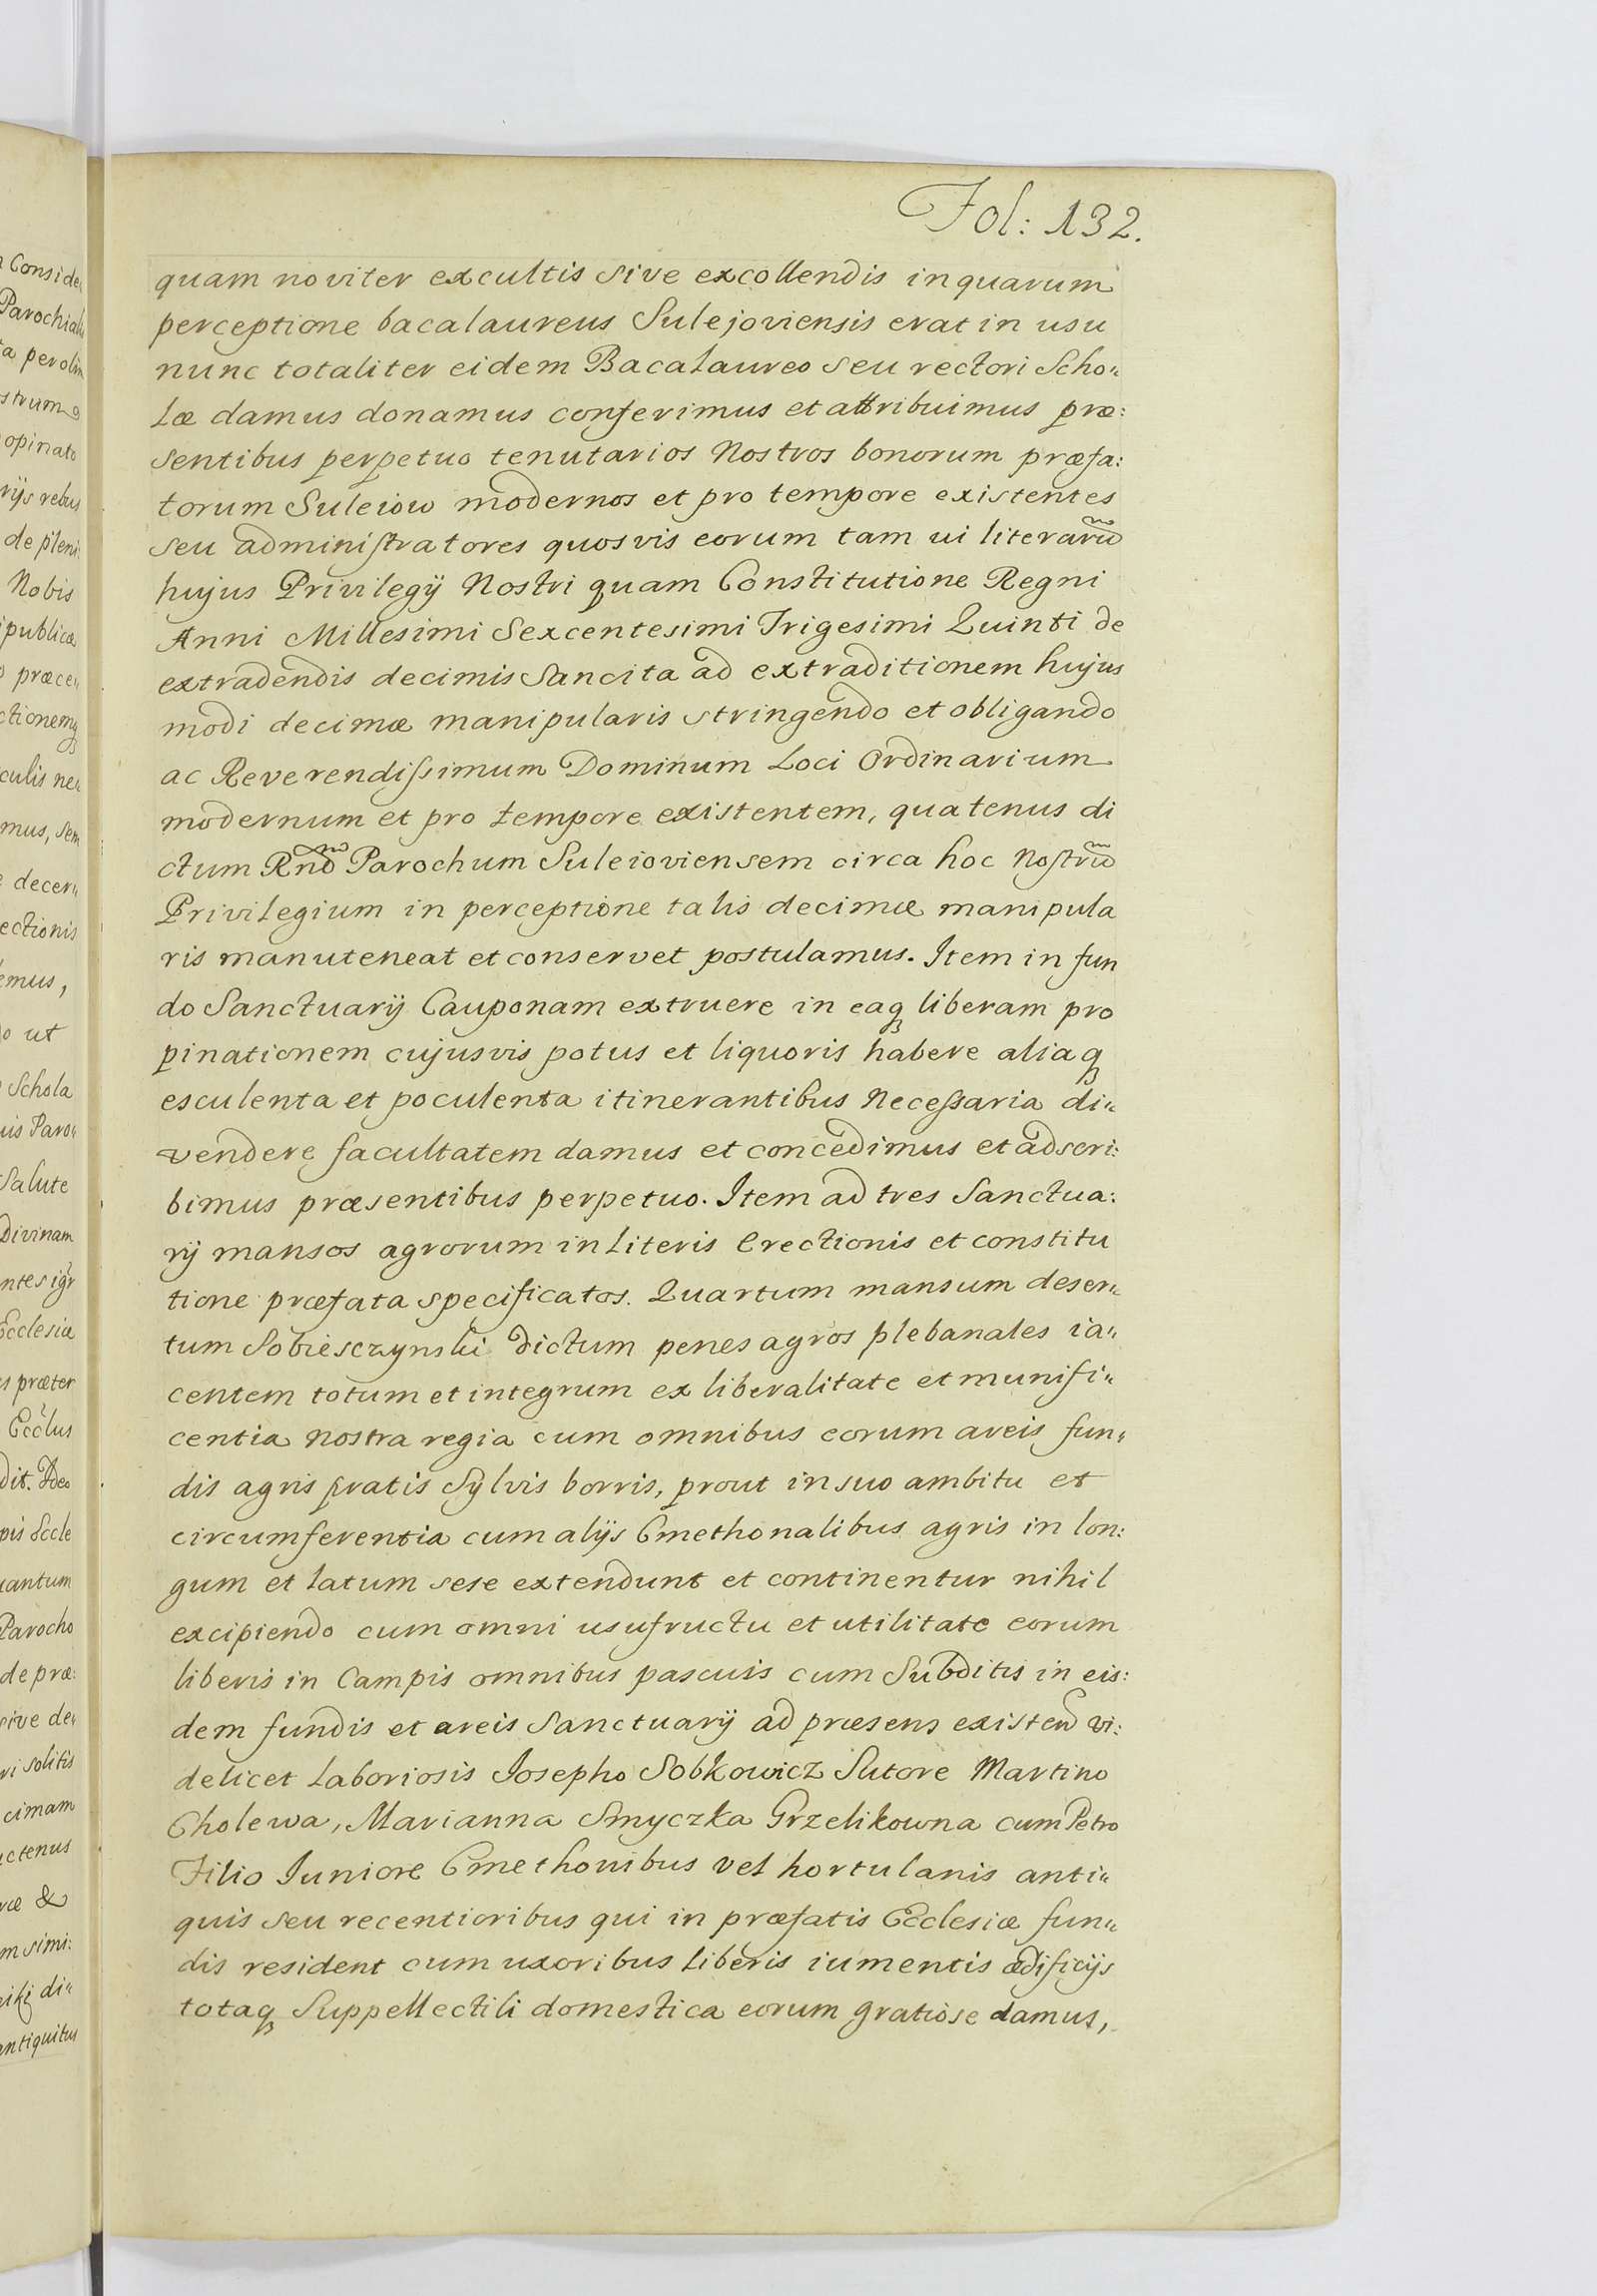 Fol: 132.
quam noviter excultis sive excollendis in quarum
perceptione bacalaureus Sulejoviensis erat in usu
nunc totaliter eidem Bacalaureo seu rectori Scho„
læ damus donamus conferimus et attribuimus præ:
sentibus perpetuo tenutarios Nostros bonorum præfa:
torum Suleiow modernos et pro tempore existentes
seu administratores quosvis eorum tam ui literarũ
hujus Privilegij Nostri quam Constitutione Regni
Anni Millesimi Sexcentesimi Trigesimi Quinti de
extradendis decimis Sancita ad extraditionem hujus
modi decimæ manipularis stringendo et obligando
ac Reverendissimum Dominum Loci Ordinarium
modernum et pro tempore existentem, quatenus di
ctum Rnd̃ Parochum Suleioviensem circa hoc Nostrũ
Privilegium in perceptione talis decimæ manipula
ris manuteneat et conservet postulamus. Item in fun
do Sanctuarij Cauponam extruere in eaqꝫ liberam pro
pinationem cujusvis potus et liquoris habere aliaqꝫ
esculenta et poculenta itinerantibus Necessaria di„
vendere facultatem damus et concedimus et adscri:
bimus præsentibus perpetuo. Item ad tres Sanctua:
rij mansos agrorum in literis Erectionis et constitu
tione præfata specificatos. Quartum mansum deser„
tum Sobiesczynski dictum penes agros plebanales ia„
centem totum et integrum ex liberalitate et munifi„
centia Nostra regia cum omnibus eorum areis fun„
dis agris pratis Sylvis borris, prout in suo ambitu et
circumferentia cum alijs Cmethonalibus agris in lon:
gum et latum sese extendunt et continentur nihil
excipiendo cum omni usufructu et utilitate eorum
liberis in Campis omnibus pascuis cum Subditis in eis:
dem fundis et areis Sanctuarij ad præsens existen̄d vi:
delicet Laboriosis Josepho Sobkowicz Sutore Martino
Cholewa, Marianna Smyczka Grzelikowna cum Petro
Filio Juniore Cmethonibus vel hortulanis anti„
quis seu recentioribus qui in præfatis Ecclesiæ fun„
dis resident cum uxoribus Liberis iumentis ædificijs
totaqꝫ Suppellectili domestica eorum gratiose damus,